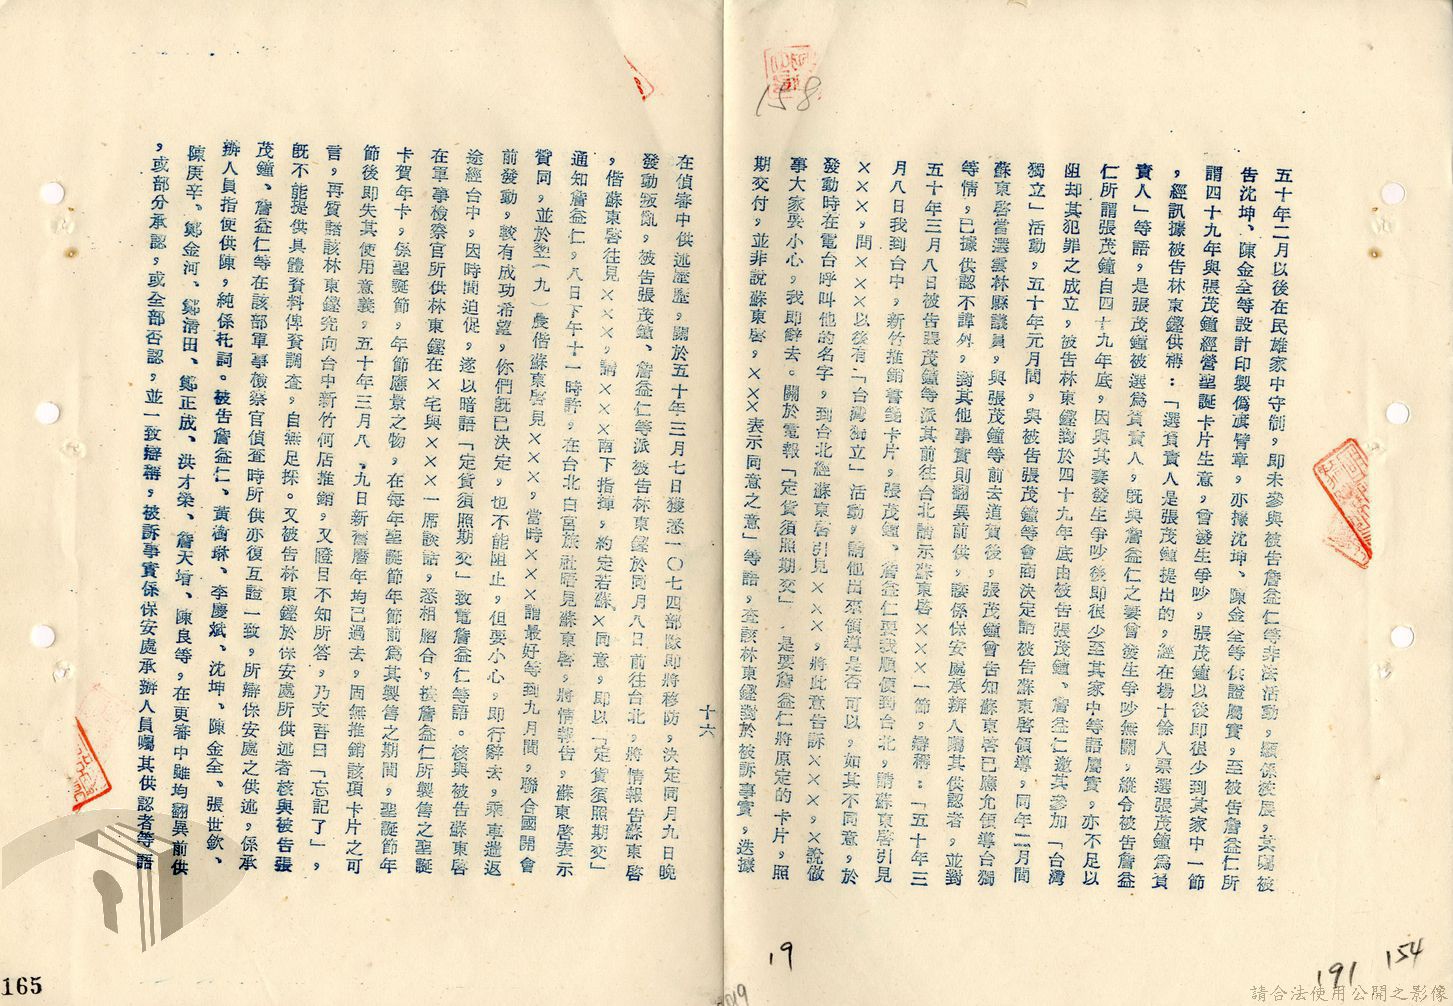 158
五十年二月以後在民雄家中守制，即未參與被告詹益仁等非法活動，顯係後展，其囑被
告沈坤、陳金全等設計印製偽旗臂章，亦據沈坤、陳金全等供證屬實，至被告詹益仁所
謂四十九年與張茂鐘經營聖誕卡片生意，曾發生爭吵，張茂鐘以後即很少到其家中一節
，經訊據被告林東鏗供稱：「選負責人是張茂鐘提出的，經在場十餘人票選張茂鐘為負
責人」等語，是張茂鐘被選為負責人，既與詹益仁之妻曾發生爭吵無關，縱令被告詹益
仁所謂張茂鐘自四十九年底，因與其妻發生爭吵後即很少至其家中等語屬實，亦不足以
阻却其犯罪之成立，被告林東鏗對於四十九年底由被告張茂鐘、詹益仁邀其參加「台灣
獨立」活動，五十年元月間，與被告張茂鐘等會商決定請被告蘇東啓領導，同年二月間
蘇東啓當選雲林縣議員，與張茂鐘等前去道賀後，張茂鐘曾告知蘇東啓已應允領導台獨
等情，已據供認不諱外，對其他事實則翻異前供，諉係保安處承辦人囑其供認者，並對
五十年三月八日被告張茂鐘等派其前往台北請示蘇東啓×××一節，辯稱：「五十年三
月八日我到台中，新竹推銷書籤卡片，張茂鐘、詹益仁要我順便到台北，請蘇東啓引見
×××，問××××以後有「台灣獨立」活動，請他出來領導是否可以，如其不同意，於
發動時在電台呼叫他的名字，到台北經蘇東啓引見×××，將此意告訴×××，×說做
事大家要小心，我即辭去。關於電報「定貨須照期交」，是要詹益仁將原定的卡片，照
期交付，並非說蘇東啓，×××表示同意之意」等語，查該林東鏗對於被訴事實，迭據
十六
在偵審中供述歷歷，關於五十年三月七日獲悉一〇七四部隊即將移防，決定同月九日晚
發動叛亂，被告張茂鐘、詹益仁等派被告林東鏗於同月八日前往台北，將情報告蘇東啓
，偕蘇東啓往見×××，請×××南下指揮，約定若蘇、×同意，即以「定貨須照期交」
通知詹益仁，八日下午十一時許，在台北白宮旅社晤見蘇東啓，將情報告，蘇東啓表示
贊同，並於翌（九）晨偕蘇東啓見×××，當時×××謂最好等到九月間，聯合國開會
前發動，較有成功希望，你們既已決定，也不能阻止，但要小心，即行辭去，乘車遄返
途經台中，因時間迫促，遂以暗語「定貨須照期交」致電詹益仁等語。核與被告蘇東啓
在軍事檢察官所供林東鏗在×宅與×××一席談話，悉相脗合，按詹益仁所製售之聖誕
卡賀年卡，係聖誕節，年節應景之物，在每年聖誕節年節前為其製售之期間，聖誕節年
節後即失其使用意義，五十年三月八、九日新舊曆年均已過去，固無推銷該項卡片之可
言，再質諸該林東鏗究向台中新竹何店推銷，又瞪目不知所答，乃支吾曰「忘記了」，
既不能提供具體資料俾資調查，自無足採。又被告林東鏗於保安處所供述者核與被告張
茂鐘、詹益仁等在該部軍事檢察官偵查時所供亦復互證一致，所辯保安處之供述，係承
辦人員指使供陳，純係托詞。被告詹益仁、黃樹琳、李慶斌、沈坤、陳金全、張世欽、
陳庚辛、鄭金河、鄭清田、鄭正成、洪才榮、詹天增、陳良等，在更審中雖均翻異前供
，或部分承認，或全部否認，並一致辯稱，被訴事實係保安處承辦人員囑其供認者等語
19
191
154
165
請合法使用公開之影像